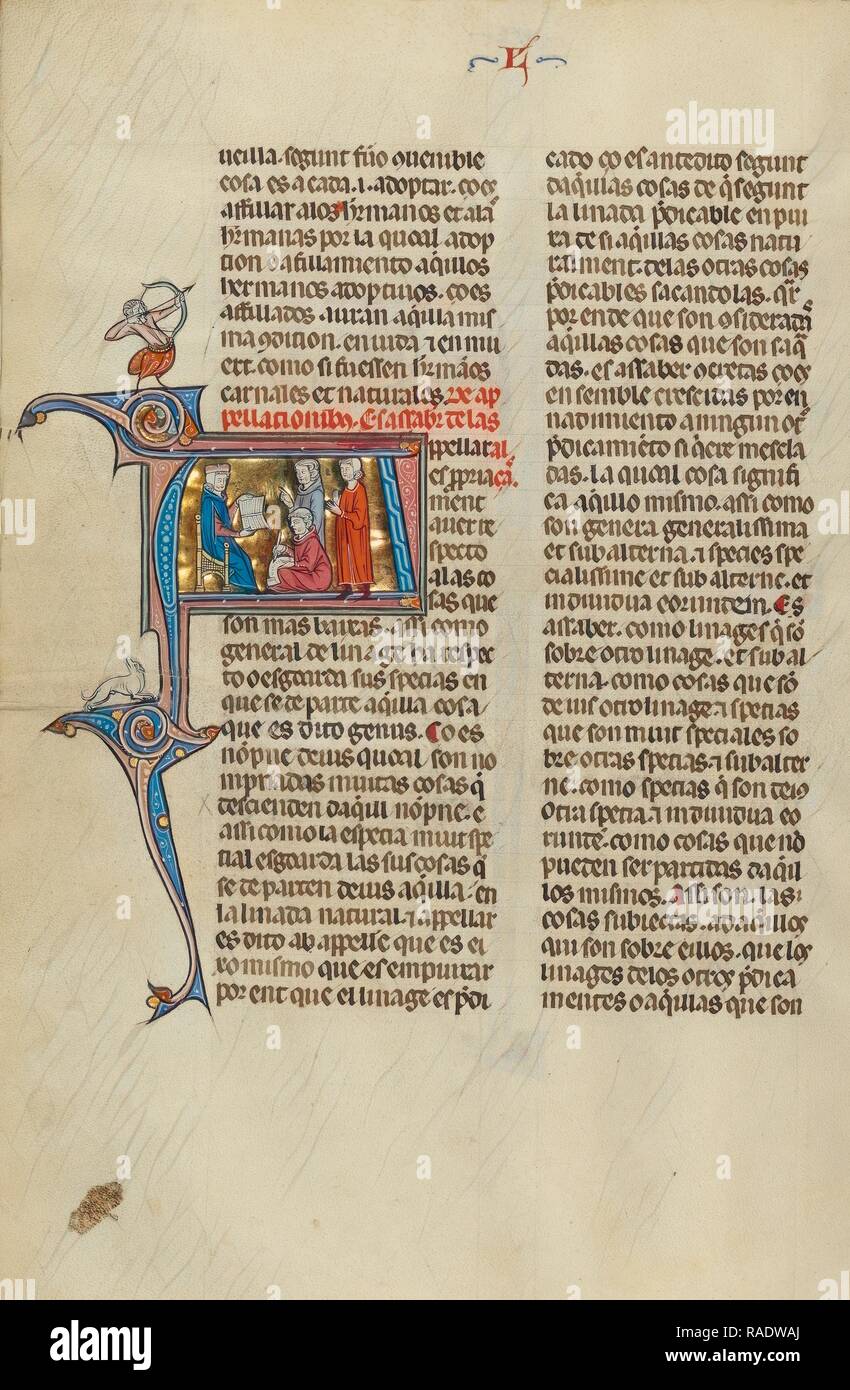 L
ueilla. segunt fuio quemble
cosa es a cada .i. adoptar. coes
affillar a los hermanos et a la
hermanas por la quoal adop
tion o afillamiento aqillos
hermanos adoptiuos. co es
affillados auran aquilla mis
ma condition. en uida et en mu
ert. como si fuessen hrmanos
carnales et naturales. De ap
pellationibus. Es assabr de las
ppellar al
es ppria
ment
auer re
specto
a las co
sas que
son mas baixas. assi como
general de linage ha respec
to o esgoarda sus specias en
que se de parte aquilla cosa
que es dito genus. Co es
nopne deius quoal son no
mpnadas muitas cosas q
descienden daqui nopne. e
assi como la especia muit spe
tial esgoarda las sus cosas q
se de parten deius aquilla. en
la linada natural. et appellar
es dito ab appelle que es ei
xo mismo que es empuixar
por ent que el linage es pdi
cado co es antedito segunt
daqillas cosas de q segunt
la linada pdicable en piu
ra de si aqillas cosas natu
ralment. de las otras cosas
pdicables sacando las. qr
por ende que son
aqillas cosas que son saq
das. es assaber ocretas coes
en semble crescidas por en
nadimiento a ningun otr
pdicamieto si qere mescla
das. la quoal cosa signifi
ca aqillo mismo. assi como
son genera generalissima
et subalterna et species spe
cialissime et subalterne. et
indiuidua eorumdem. Es
assaber. como linages q so
sobre otro linage. et subal
terna. como cosas que so
de ius otro linage et specias
que son muit speciales so
bre otras specias. et subalter
ne. como specias q son deius
otra specia. et indiuidua eo
runde. como cosas que no
pueden ser partidas daqil
los mismos. Assi son las
cosas subiectas. ad aqillos
qui son sobre eillos. que los
linages de los otros pdica
mentes o aqillas que son
alamy
Image ID: RADWAJ
www.alamy.com